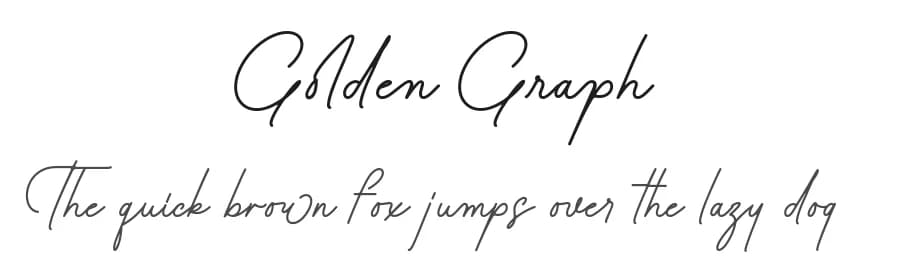 Golden Graph
The quick brown fox jumps over the lazy dog